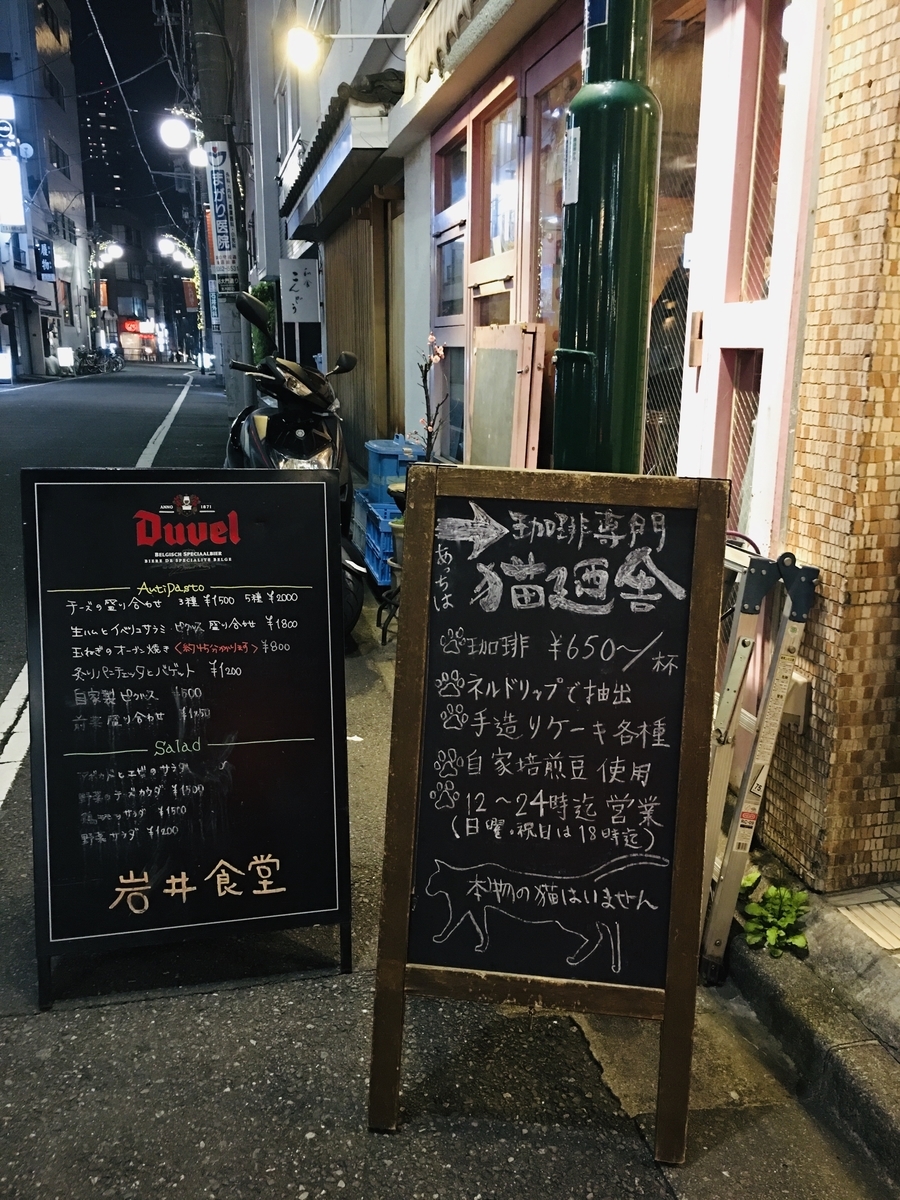 まがり医院
こんどう
ANNO 1871
Duvel
BELGISCH SPECIAALBIER
BIERE DE SPECIALITE BELGE
AntiPasto
チーズの盛り合わせ 3種 ¥1500 5種 ¥2000
生ハムとイベリコサラミ ピクルス 盛り合せ ¥1800
玉ねぎのオーブン焼き <約45分かかります> ¥800
炙りパンチェッタとバゲット ¥1200
自家製ピクルス ¥500
前菜盛り合わせ
Salad
アボカドとエビのサラダ
野菜のバーニャカウダ ¥1500
サラダ ¥1500
野菜サラダ ¥1200
岩井食堂
珈琲専門
あっちは
猫廼舎
珈琲 ¥650〜/杯
ネルドリップで抽出
手造りケーキ各種
自家焙煎豆使用
12〜24時迄営業
(日曜・祝日は18時迄)
本物の猫はいません